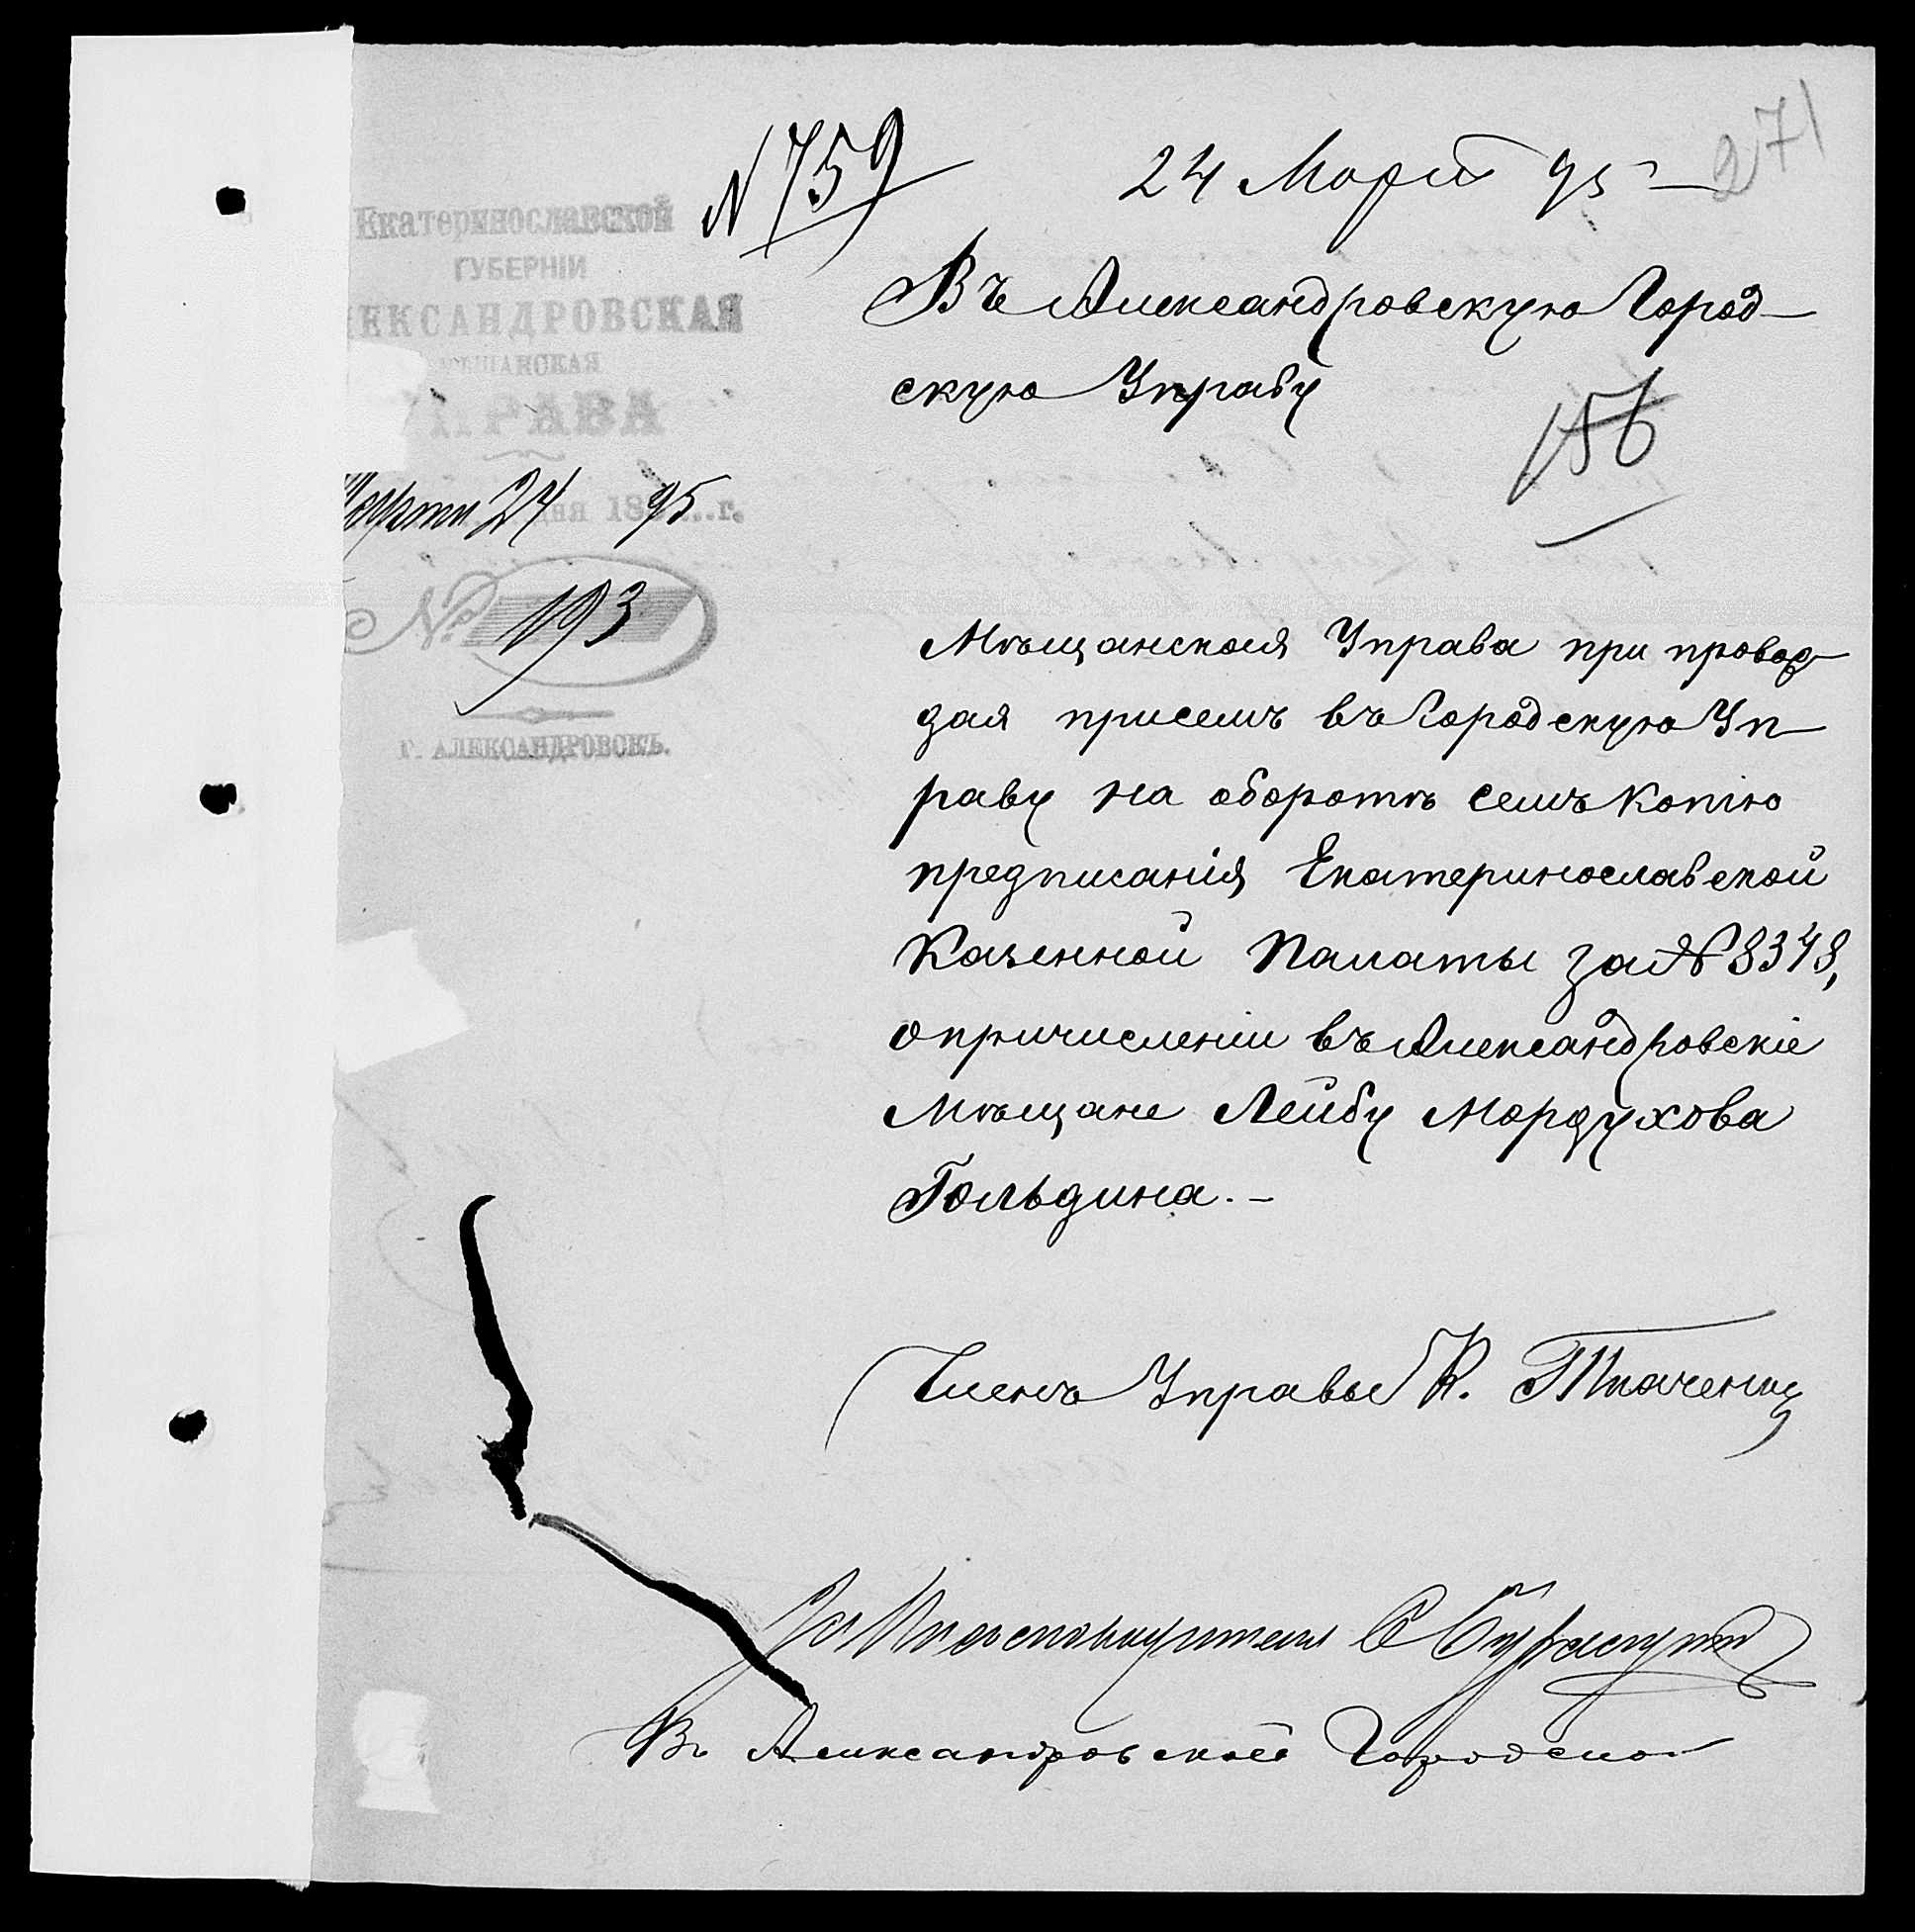 271
N 759
24 Марта 95 г.
Екатеринославской
ГУБЕРНІИ
ЛЕКСАНДРОВСКАЯ
МѢЩАНСКАЯ
УПРАВА
Марта 24 дня 1895 г.
№ 193
г. АЛЕКСАНДРОВСКЪ.
Въ Александровскую Город-
скую Управу
156
Мѣщанская Управа при провож-
дая присемъ въ Городскую Уп-
раву на оборотѣ семъ копію
предписанія Екатеринославской
Казенной Палаты за № 8348,
о причисленіи въ Александровскіе
Мѣщане Лейбу Мордухова
Гольдина.-
Членъ Управы К. Ткаченко
За Дѣлопроизводителя
Въ Александровской Городской